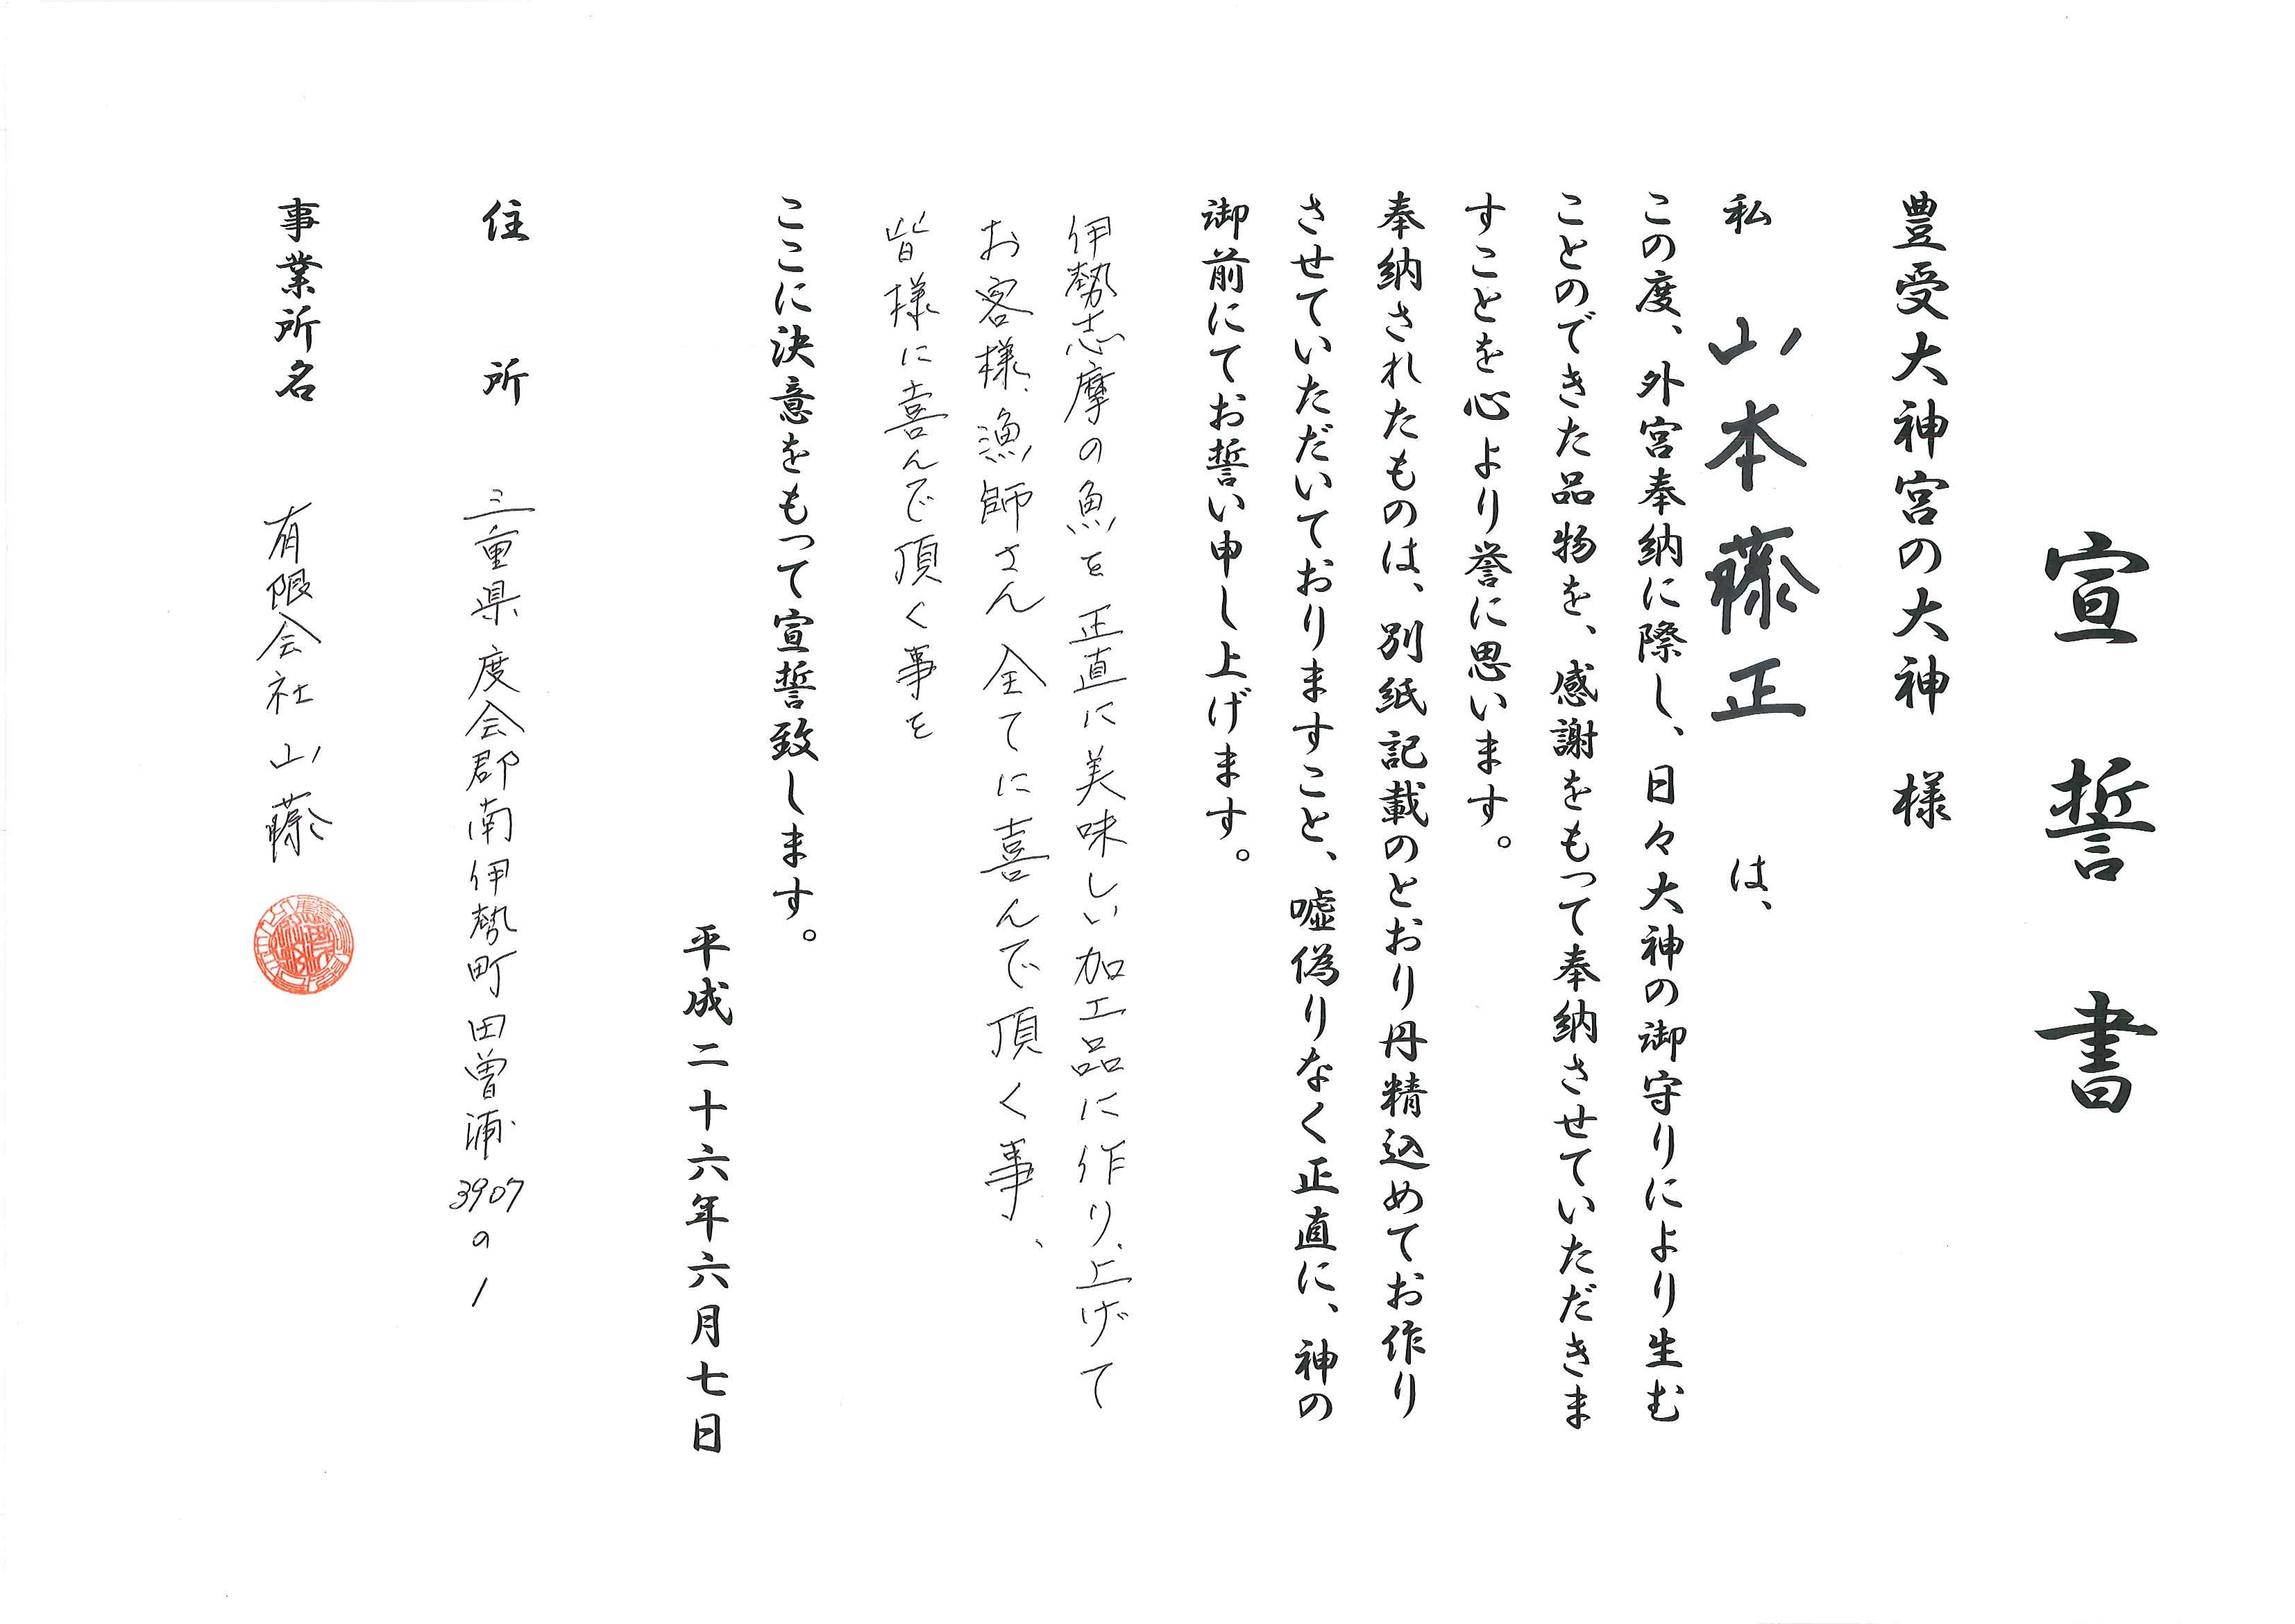 宣誓書
豊受大神宮の大神 様
私 山本藤正 は、
この度、外宮奉納に際し、日々大神の御守りにより生む
ことのできた品物を、感謝をもって奉納させていただきま
すことを心より誉に思います。
奉納されたものは、別紙記載のとおり丹精込めてお作り
させていただいておりますこと、嘘偽りなく正直に、神の
御前にてお誓い申し上げます。
伊勢志摩の魚を正直に美味しい加工品に作り、上げて
お客様、漁師さん全てに喜んで頂く事、
皆様に喜んで頂く事を
ここに決意をもって宣誓致します。
平成二十六年六月七日
住所 三重県度会郡南伊勢町田曽浦3907の1
事業所名 有限会社山藤